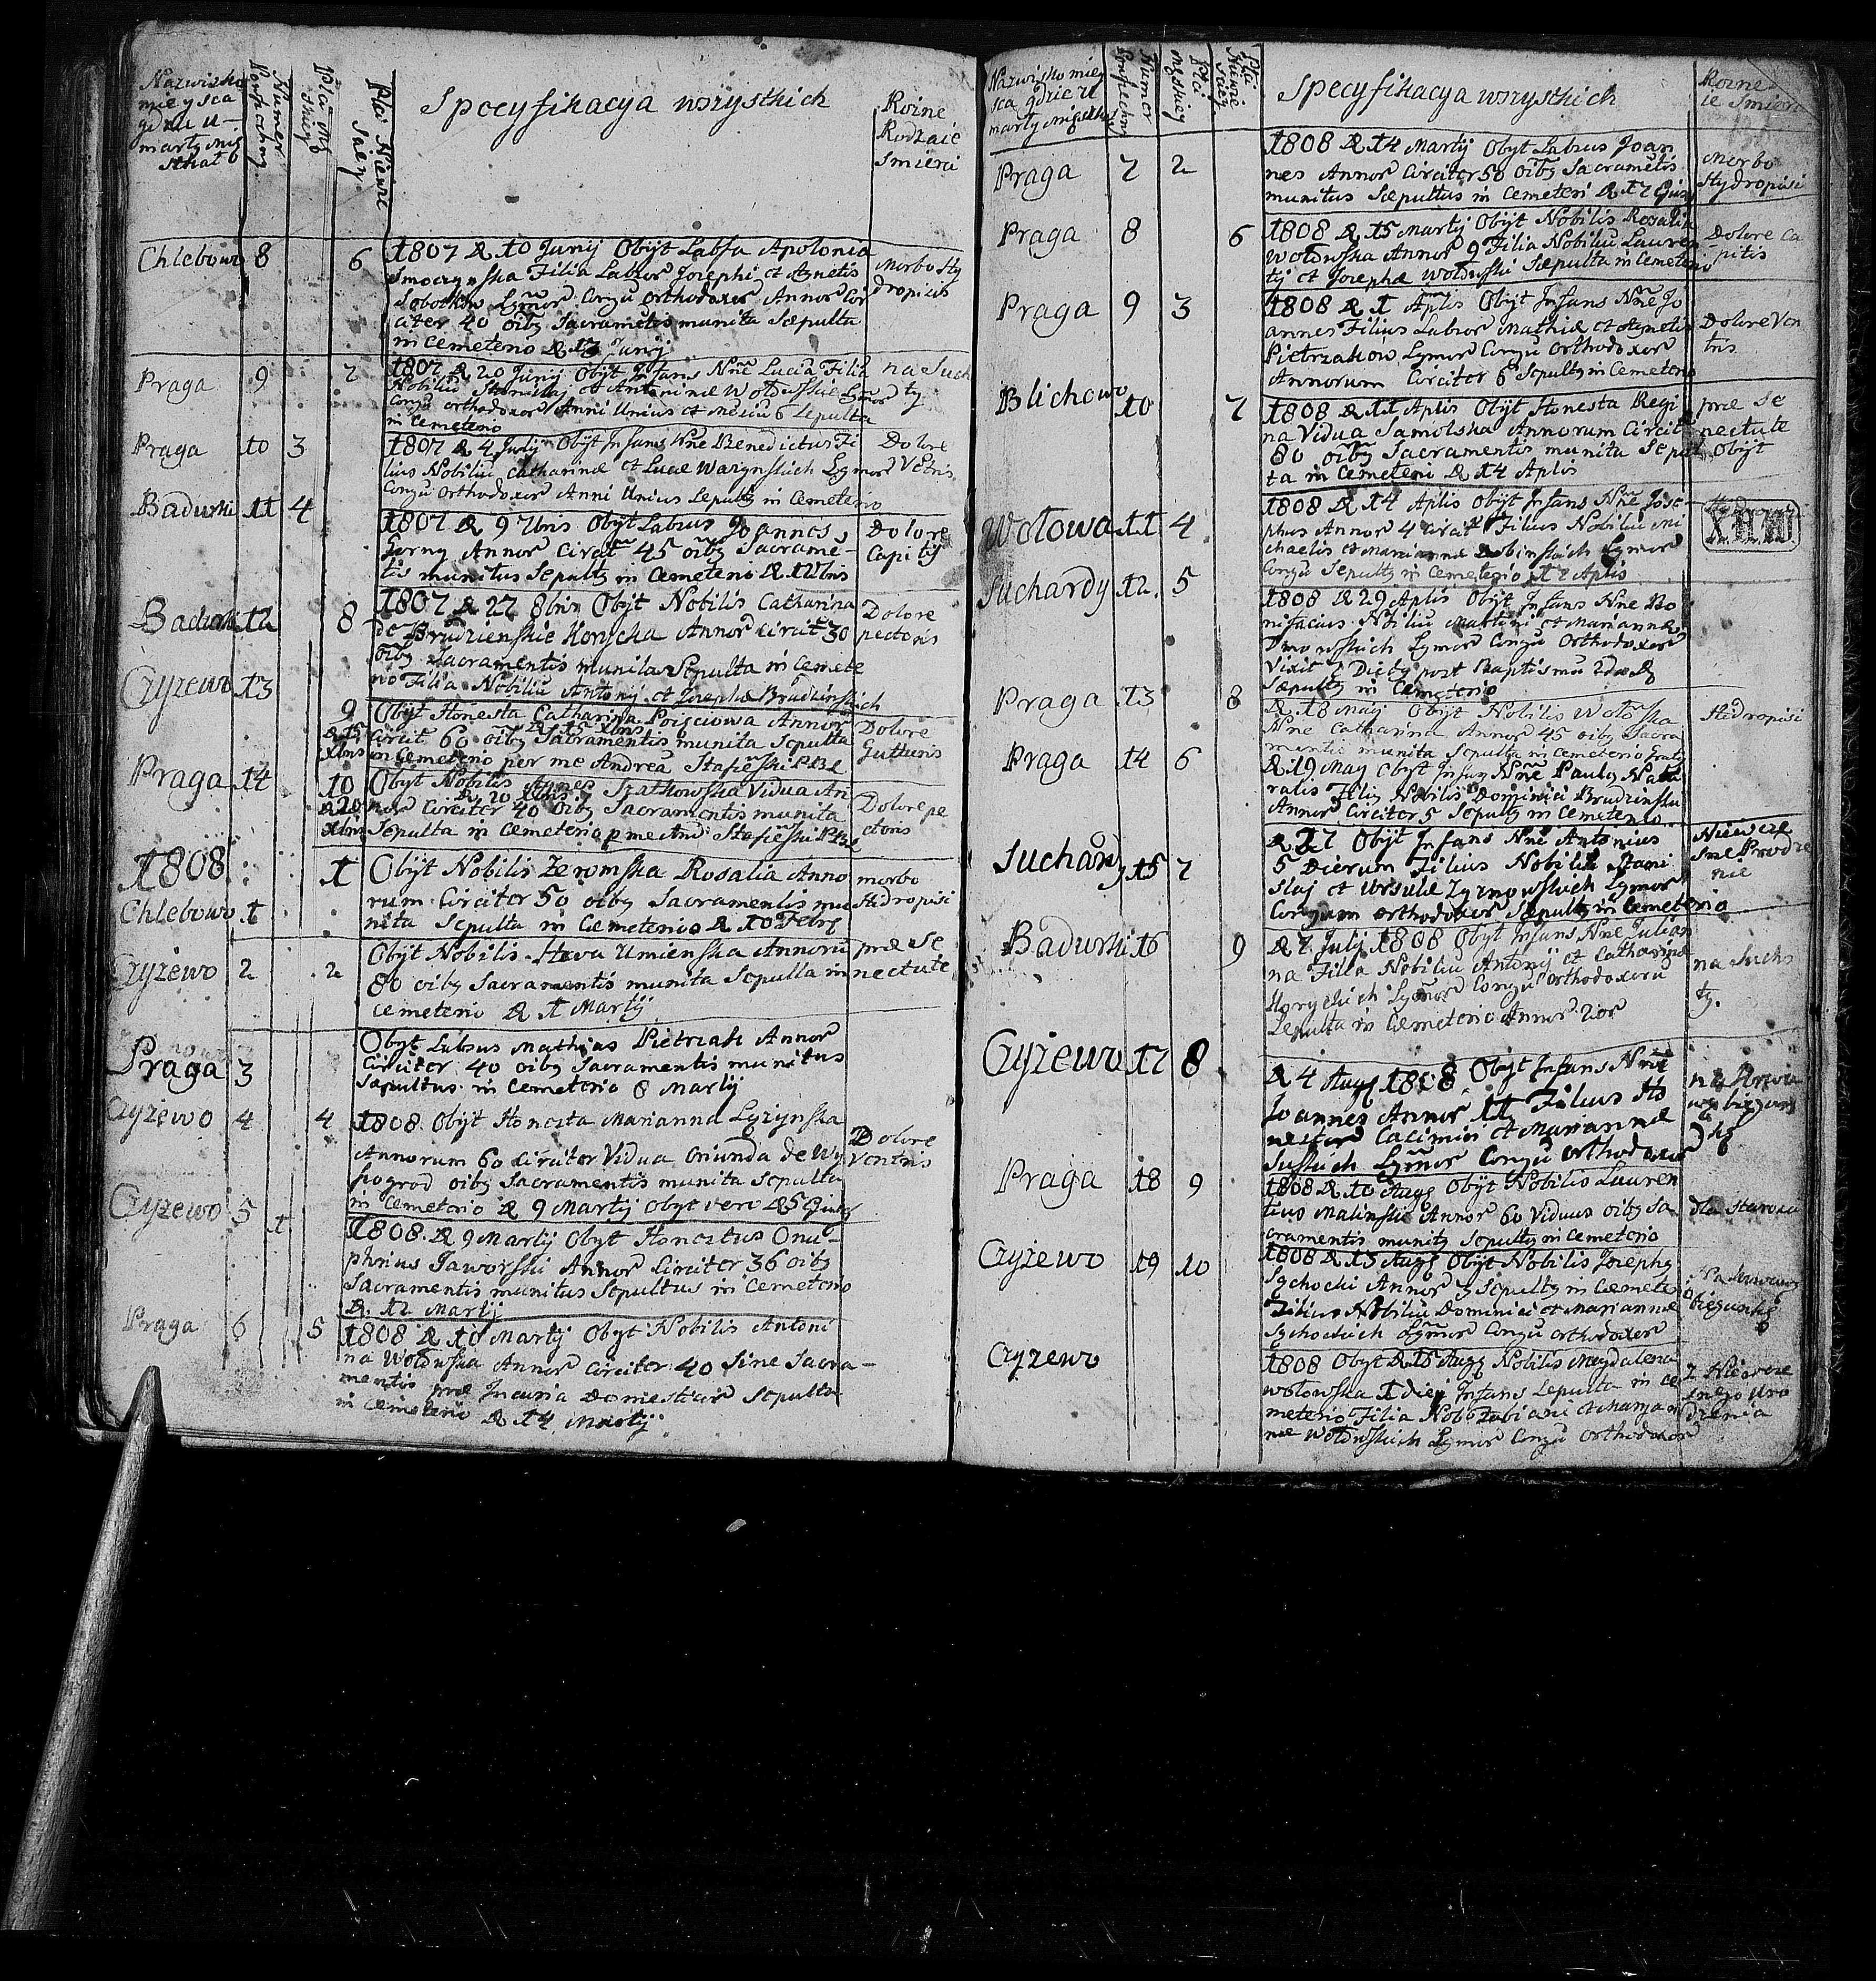 Nazwisko
mieysca
gdzie u-
marły mię
szkał
Numer
Powszechny
Płci Mę
skiey
Płci Niewie
sciey
Specyfikacya wszystkich
Rożne
Rodzaie
Smierci
Chlebowo 8 6
1807 D 10 Junij Obijt Labsa Apolonia
Smoczynska Filia Labror Josephi et Agnetis
Sobotkow Lgmor Congu Orthodoxor Annor Cir
citer 40 oibg Sacrametis munita Sæpulta
in Cemeterio D 13 Junij
Morbo Hy
dropicis
Praga 9 7
1807 D 20 Junij Obijt Infans Nñe Lucia Filia
Nobiliu Stanislai et Antoninæ Wołowskie Lgmor
Congu orthodoxor Anni Unius et Mesiu 6 Sepulta
in Cemeterio
na Such
ty
Praga 10 3
1807 D 4 Julij Obijt Infans Nñe Benedictus Fi
lius Nobiliu Catharinæ et Lucæ Warynskich Lgmor
Congu Orthodoxor Anni Unius Sepultg in Cemeterio
Dolore
Vetris
Badurki 11 4
1807 D 9 7bris Obijt Labrus Joannes
Gorny Annor Circit 45 oibg Sacrame-
tis munitus Sepultg in Cemeterio D 11 7bris
Dolore
Capitij
Badurki 12 8
1807 D 27 8bris Obijt Nobilis Catharina
de Brudzienskie Horycka Annor Circit 30
oibg Sacramentis munita Sepulta in Cemete
rio Filia Nobiliu Antonij et Josephæ Brudzinskich
Dolore
pectoris
Czyżewo 13
9
D 15
Xbris
Obijt Honesta Catharina Poisciowa Annor
D 15 Xbris
Circit 60 oibg Sacramentis munita Sepulta
in Cemeterio per me Andrea Stafieski PBL
Dolore
Gutturis
Praga 14
10
D 20
Xbris
Obijt Nobilis Agnes Szatkowska Vidua An
D 20 Xbris
nor Circiter 40 oibg Sacramentis munita
Sepulta in Cemeterio p me And: Stafieski PBL
Dolore pe
ctoris
1808
Chlebowo 1 1
Obijt Nobilis Zeromska Rosalia Anno
rum Circiter 50 oibg Sacramentis mu
nita Sepulta in Cemeterio D 10 Febrs
morbo
Hidropisi
Czyżewo 2 2
Obijt Nobilis Heva Umienska Annorū
80 oibg Sacramentis munita Sepulta in
Cemeterio D 1 Martij
præ Se
nectute
Praga 3
Obijt Labsus Mathias Pietrzak Annor
Circiter 40 oibg Sacramentis munitus
Sæpultus in Cemeterio 8 Martij
Czyżewo 4 4
1808 Obijt Honesta Marianna Lyzynska
Annorum 60 Circiter Vidua oriunda de Wy
sogrod oibg Sacramentis munita Sepulta
in Cemeterio D 9 Martij Obijt vero D 5 Ejusd
Dolore
Ventris
Czyżewo 5 1
1808 D 9 Martij Obijt Honestus Onu-
phrius Jaworski Annor Circiter 36 oibg
Sacramentis munitus Sepultus in Cemeterio
D. 12 Martij
Praga 6 5
1808 D 10 Martij Obijt Nobilis Antoni
na Wołowska Annor Circiter 40 Sine Sacra-
mentis præ Incuria Domesticor Sepulta
in Cemeterio D 14 Martij
Nazwisko miey
sca gdzie u
marły mięszkał
Numer
Powszechny
Płci
męskiey
Płci
Niewie
sciey
Specyfikacya wszystkich
Rożne
Praga 7 2
1808 D 14 Martij Obijt Labrus Joan
nes Annor Circiter 50 oibg Sacrametis
munitus Sæpultus in Cemeteri D 17 Ejusd
Morbo
Hydropisi
Praga 8 6
1808 D 15 Martij Obijt Nobilis Rosalia
Wołowska Annor 9 Filia Nobiliu Lauren
tij et Josephæ Wołowski Sæpulta in Cemeterio
Dolore Ca
pitis
Praga 9 3
1808 D 1 Aplis Obijt Infans Nñe Jo
annes Filius Labror Mathiæ et Agnetis
Pietrzakow Lgmor Congu Orthodoxor
Annorum Circiter 6 Sepultg in Cemeterio
Dolore Ven
tris
Blichowo 10 7
1808 D 11 Aplis Obijt Honesta Regi
na Vidua Samolska Annorum Circit
80 oibg Sacramentis munita Sepul
ta in Cemeteri D 14 Aplis
præ Se
nectute
Obijt
Wołowa 11 4
1808 D 14 Aplis Obijt Infans Nñe Jose
phus Annor 4 Circit Filius Nobiliu Mi
chaelis et Mariannæ Robinskich Lgmor
Congu Sepultg in Cemeterio 17 Aplis
Suchardy 12. 5
1808 D 29 Aplis Obijt Infans Nñe Bo
nifacius Nobiliu Martini et Mariannæ
Dmowskich Lgmor Congu Orthodoxor
Sæpultg in Cemeterio
Praga 13 8
D 18 Maij Obijt Nobilis Woło ska
Nñe Catharina Annor 45 oibg Sacra
mentis munita Sepulta in Cemeterio
Hidropisi
Praga 14 6
D 19 Maij Obijt Infans Nñe Paulg Natu
ralis Filig Nobilis Dominici Brudzinski
Annor Circiter 5 Sepultg in Cemeterio
Suchardy 15 7
D 27 Obijt Infans Nñe Antonius
5 Dierum Filius Nobiliu Stani
slaj et Ursulæ Zyznowskich Lgmor
Congum orthodoxor Sæpultg in Cemeterio
Niewcze
sne Urodze
nie
Badurki 16 9
D 7 Julij 1808 Obijt Infans Nñe Julian
na Filia Nobiliu Antonij et Catharinæ
Horyckich Lgmor Congu Orthodoxoru
Sepulta in Cemeterio Annor 2ior
na Such
ty.
Czyżewo 17 8
D 4 Augs 1808 Obijt Infans Nñe
Joannes Annor 11 Filius Ho
nestor Casimiri et Mariannæ
Suskich Lgmor Congu Orthodoxor
Praga 18 9
1808 D 10 Augs Obijt Nobilis Lauren
tius Malinski Annor 60 Viduus oibg Sa-
cramentis munitg Sepultg in Cemeterio
Czyżewo 19 10
1808 D 15 Augs Obijt Nobilis Josephg
Sychocki Annor 3 Sepultg in Cemete
Filius Nobiliu Dominici et Mariannæ
Sychockich Lgmor Congu Orthodoxor
biegunkę
Czyżewo
1808 Obijt D 15 Augs Nobilis Magdalena
Wołowska 1 diej Infans Sepulta in Ce
meterio Filia Nobb Fabiani et Marjan
næ Wołowskich Lgmor Congu Orthodoxor
z Niewcze
snego Uro
dzenia